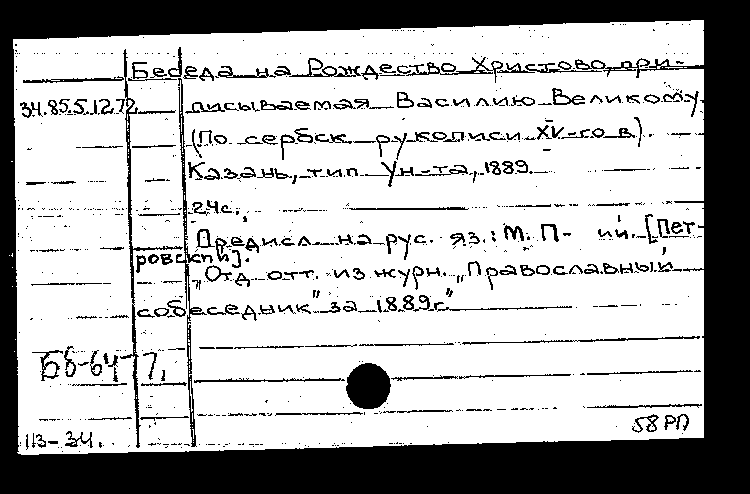 Беседа на Рождество Христово, при-
34.85.5.1272 писываемая Василию Великому.
(По сербск. рукописи XV-го в).
Казань, тип. Ун-та, 1889.
24с.
Предисл. на рус. яз.: М. П- ий. [Пет-
ровский].
„Отд. отт. из журн. „Православный
собеседник" за 1889г."
Б8-64
77.
113-34.
58 РП